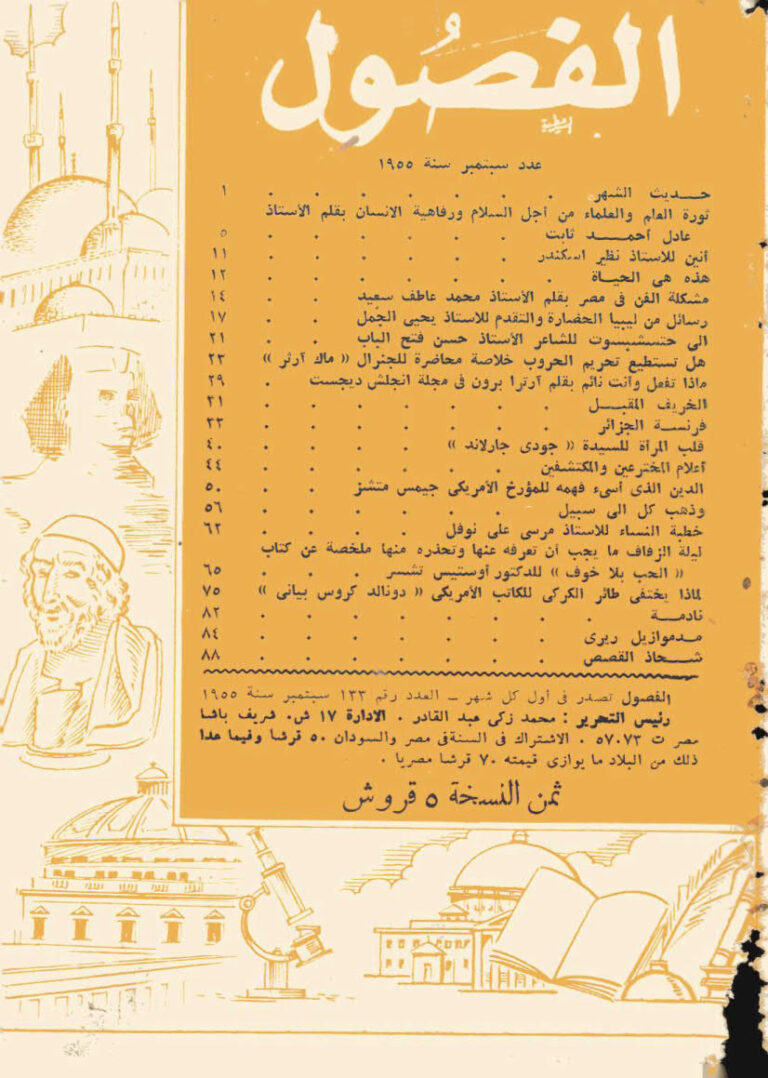 الفصول
عدد سبتمبر سنة ١٩٥٥
حــديث الشهر . . . . . . . . ١
ثورة العلم والعلماء من أجل السلام ورفاهية الانسان بقلم الأستاذ
عادل أحمــد ثابت . . . . . . ٥
أنين للاستاذ نظير اسكندر . . . . . . ١١
هذه هى الحيــاة . . . . . . . . ١٢
مشكلة الفن فى مصر بقلم الأستاذ محمد عاطف سعيد . . ١٤
رسائل من ليبيا الحضارة والتقدم للاستاذ يحيى الجمل . . ١٧
الى حتشبسوت للشاعر الأستاذ حسن فتح الباب . . ٢١
هل تستطيع تحريم الحروب خلاصة محاضرة للجنرال « ماك آرثر » ٢٣
ماذا تفعل وأنت نائم بقلم آرثرا برون فى مجلة انجلش ديجست . ٢٩
الخريف المقبــل . . . . . . . . ٣١
فرنسة الجزائر . . . . . . . . ٣٣
قلب المرأة للسيدة « جودى جارلاند » . . . . ٤٠
أعلام المخترعين والمكتشفين . . . . . . ٤٤
الدين الذى أسىء فهمه للمؤرخ الأمريكى جيمس متشنز . . ٥٠
وذهب كل الى سبيل . . . . . . . ٥٦
خطبة النساء للاستاذ مرسى على نوفل . . . . ٦٢
ليلة الزفاف ما يجب أن تعرفه عنها وتحذره منها ملخصة عن كتاب
« الحب بلا خوف » للدكتور أوستيس تشسر . . . ٦٥
لماذا يختفى طائر الكركى للكاتب الأمريكى « دونالد كروس بيانى » ٧٥
نادمــة . . . . . . . . ٨٢
مــدموازيل ريرى . . . . . . . ٨٤
شــحاذ القصص . . . . . . . ٨٨
الفصول تصدر فى أول كل شهر ــ العدد رقم ١٣٣ سبتمبر سنة ١٩٥٥
رئيس التحرير : محمد زكى عبد القادر . الادارة ١٧ ش. شريف باشا
مصر ت ٥٧٠٧٣ . الاشتراك فى السنة فى مصر والسودان ٥٠ قرشا وفيما عدا
ذلك من البلاد ما يوازى قيمته ٧٠ قرشا مصريا .
ثمن النسخة ٥ قروش